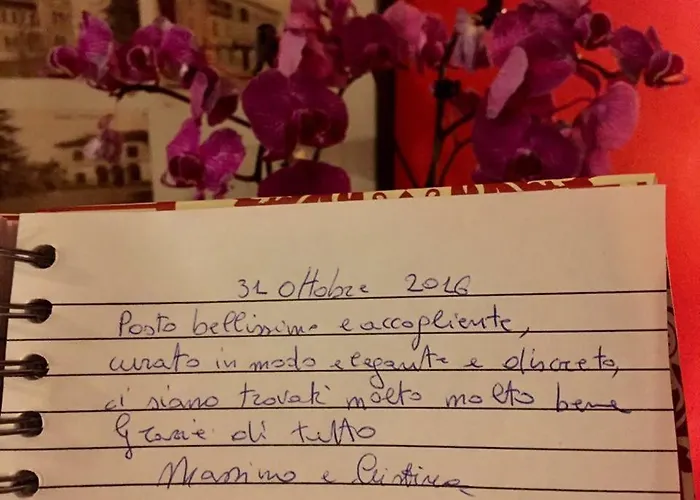 31 Ottobre 2016
Posto bellissimo e accogliente,
curato in modo elegante e discreto,
ci siamo trovati molto molto bene
Grazie di tutto
Massimo e Cristina